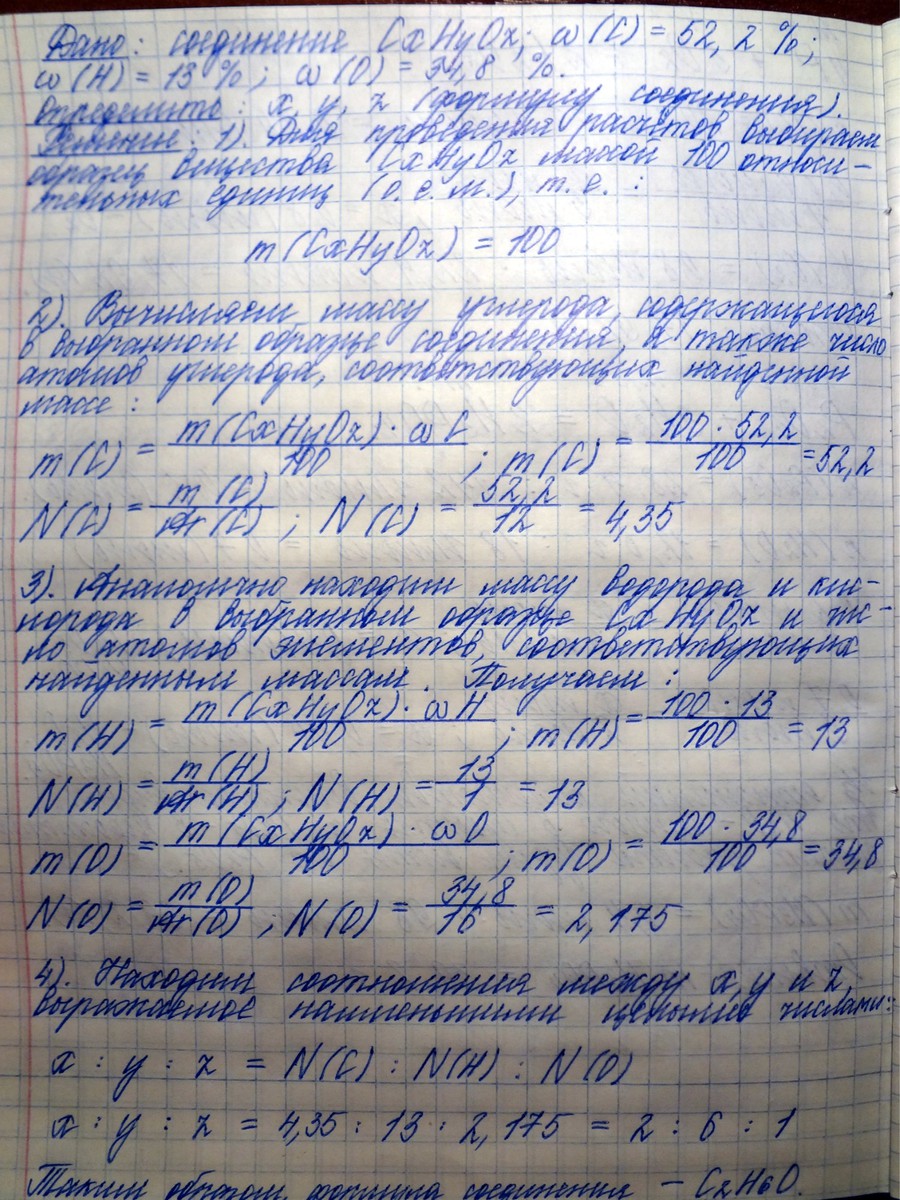 Дано: соединение CxHyOz; ω(C) = 52,2 %;
ω(H) = 13 %; ω(O) = 34,8 %.
Определить: x, y, z (формулу соединения).
Решение: 1). Для проведения расчётов выбираем
образец вещества CxHyOz массой 100 относи-
тельных единиц (о.е.м.), т.е.:
m(CxHyOz) = 100
2). Вычисляем массу углерода, содержащегося
в выбранном образце соединения, а также число
атомов углерода, соответствующих найденной
массе:
m(C) = m(CxHyOz) · ωC / 100 ; m(C) = 100 · 52,2 / 100 = 52,2
N(C) = m(C) / Ar(C) ; N(C) = 52,2 / 12 = 4,35
3). Аналогично находим массу водорода и кис-
лорода в выбранном образце CxHyOz и чис-
ло атомов элементов, соответствующих
найденным массам. Получаем:
m(H) = m(CxHyOz) · ωH / 100 ; m(H) = 100 · 13 / 100 = 13
N(H) = m(H) / Ar(H) ; N(H) = 13 / 1 = 13
m(O) = m(CxHyOz) · ωO / 100 ; m(O) = 100 · 34,8 / 100 = 34,8
N(O) = m(O) / Ar(O) ; N(O) = 34,8 / 16 = 2,175
4). Находим соотношения между x, y и z,
выражаемое наименьшими целыми числами:
x : y : z = N(C) : N(H) : N(O)
x : y : z = 4,35 : 13 : 2,175 = 2 : 6 : 1
Таким образом, формула соединения – C2H6O.